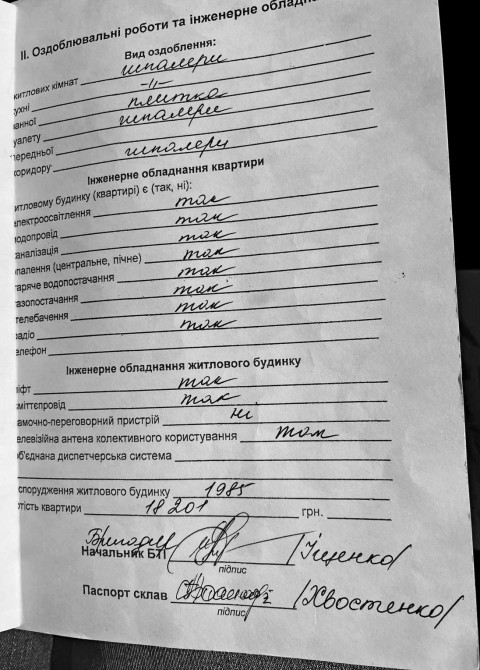 II. Оздоблювальні роботи та інженерне обладна
Вид оздоблення:
житлових кімнат шпалери
ухні –||–
анної плитка
уалету шпалери
передньої
коридору шпалери
Інженерне обладнання квартири
итловому будинку (квартирі) є (так, ні):
електроосвітлення так
водопровід так
каналізація так
палення (центральне, пічне) так
гаряче водопостачання так
газопостачання так
телебачення так
радіо так
елефон
Інженерне обладнання житлового будинку
ліфт так
сміттєпровід так
амочно-переговорний пристрій ні
елевізійна антена колективного користування так
об'єднана диспетчерська система
спорудження житлового будинку 1985
ртість квартири 18 201 грн.
Бригадир
Начальник БТІ /Іщенко/
підпис
Паспорт склав /Хвостенко/
підпис